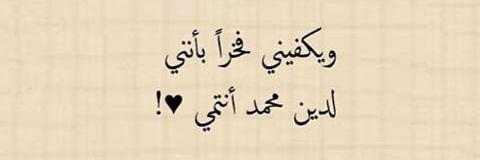 ويكفيني فخراً بأنني
لدين محمد أنتمي ♥!